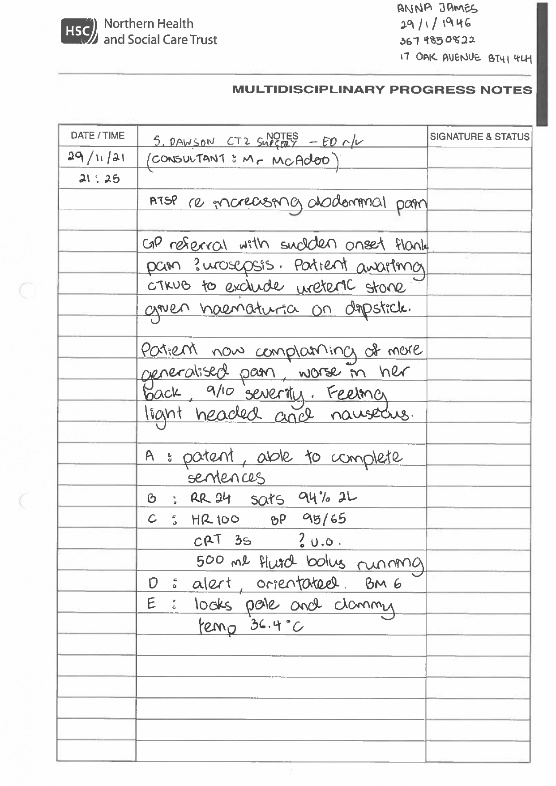 HSC Northern Health
and Social Care Trust
ANNA JAMES
29/1/1946
367 9850822
17 OAK AVENUE BT41 4LH
MULTIDISCIPLINARY PROGRESS NOTES
DATE / TIME NOTES SIGNATURE & STATUS
S. DAWSON CT2 Surgery - ED r/v
29/11/21 (CONSULTANT : Mr McAdoo)
21:25
ATSP re increasing abdominal pain
GP referral with sudden onset flank
pain ?urosepsis. Patient awaiting
CTKUB to exclude ureteric stone
given haematuria on dipstick.
Patient now complaining of more
generalised pain, worse in her
back, 9/10 severity. Feeling
light headed and nauseous.
A : patent, able to complete
sentences
B : RR 24 sats 94% 2L
C : HR 100 BP 95/65
CRT 3s ? u.o.
500 ml fluid bolus running
D : alert, orientated. BM 6
E : looks pale and clammy
temp 36.4°C